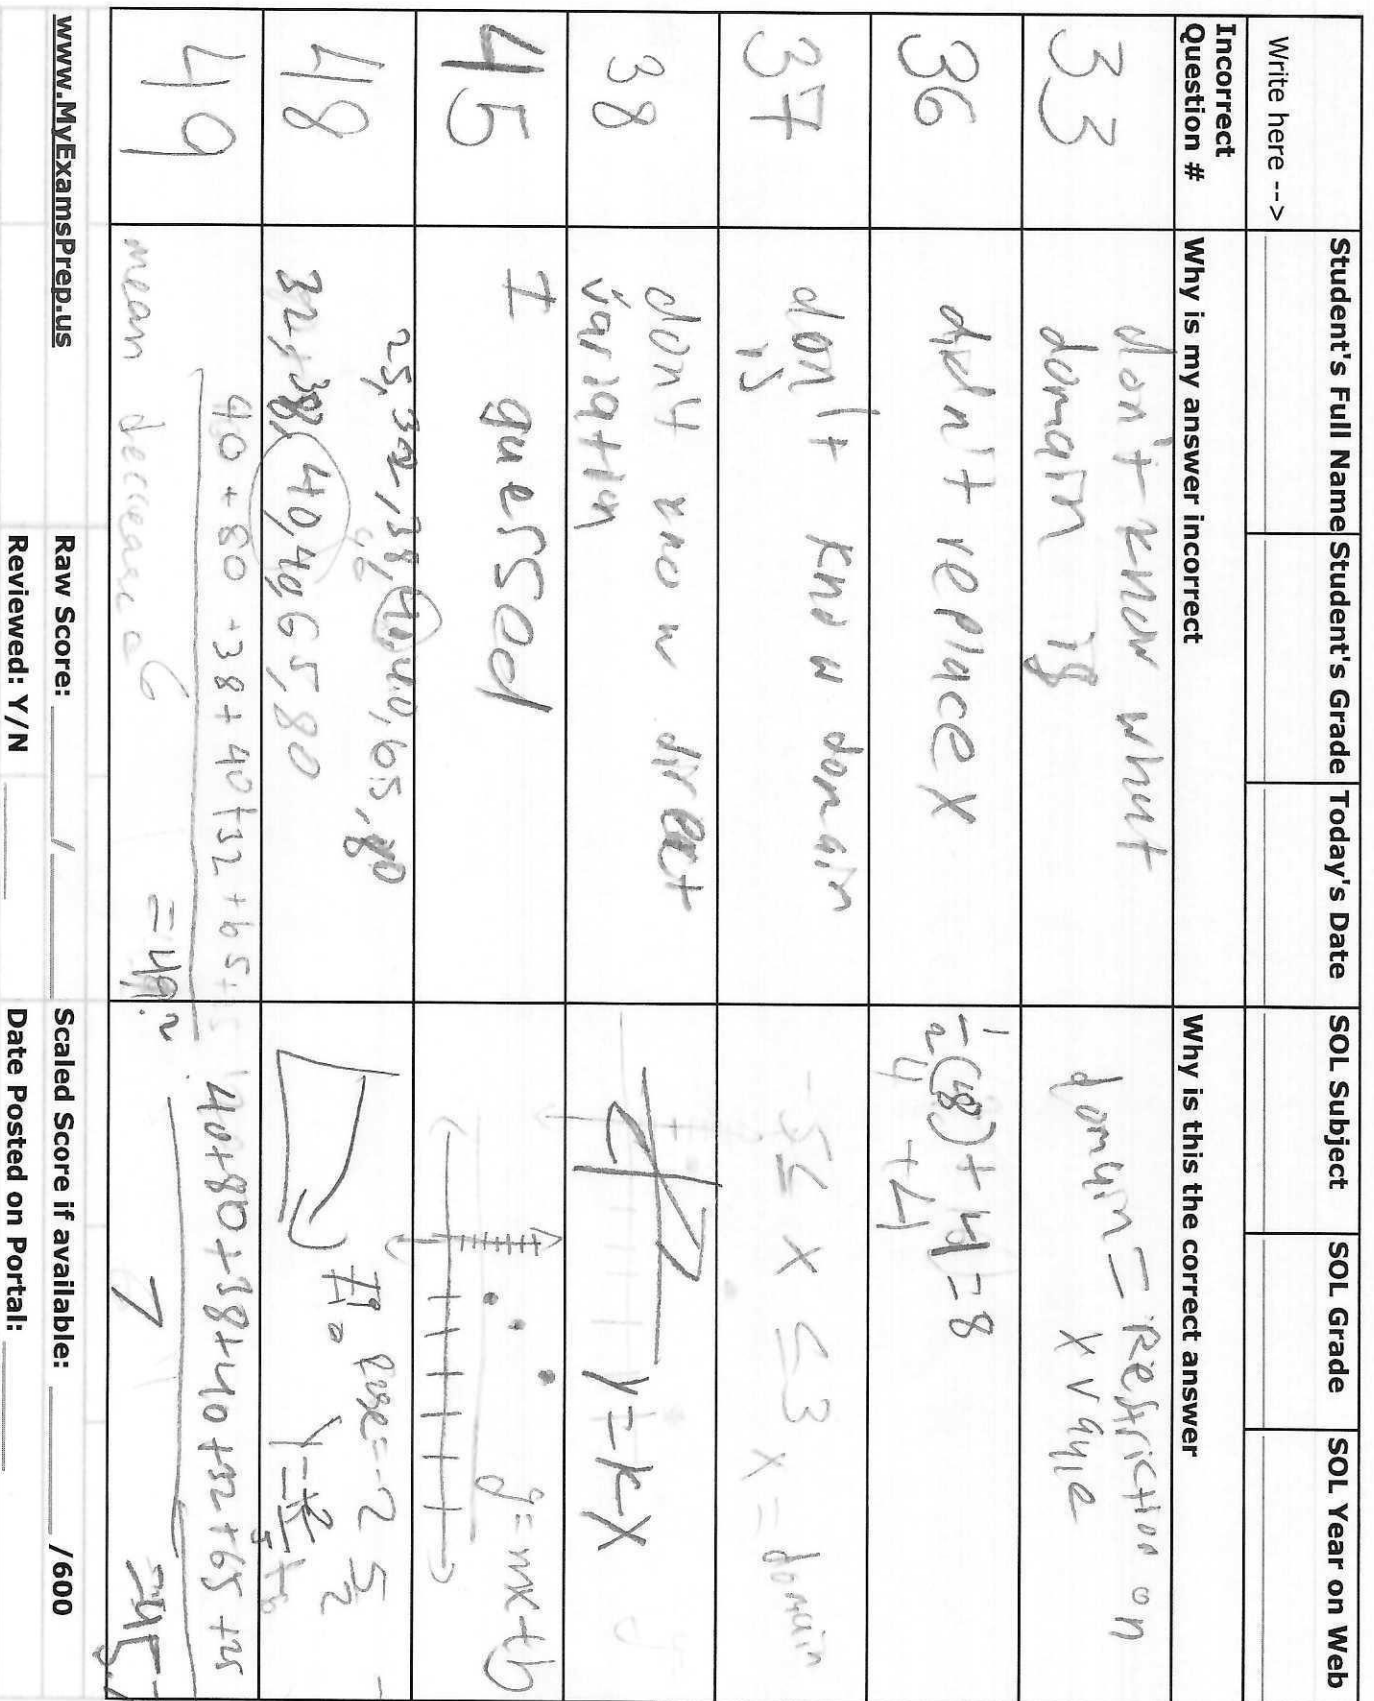 Student's Full Name Student's Grade Today's Date SOL Subject SOL Grade SOL Year on Web
Write here -->
Incorrect Question # Why is my answer incorrect Why is this the correct answer
33
don't know what
domain is
domain = Restriction on
x value
36
didn't replace x
1/2(8)+4=8
4 +4
37
don't know domain
is
-5≤ x ≤3
x = domain
38
don't know direct
variation
y=kx
45
I guessed
y=mx+b
48
25,32,38,40,40,65,80
32,38,40,40,65,80
rise=-2
5
2
49
40+80+38+40+32+65+
=49.2
mean decrease
40+80+38+40+32+65+25
7
=45.7
www.MyExamsPrep.us Raw Score: ______/______ Scaled Score if available: ______/600
Reviewed: Y/N ______ Date Posted on Portal: ______